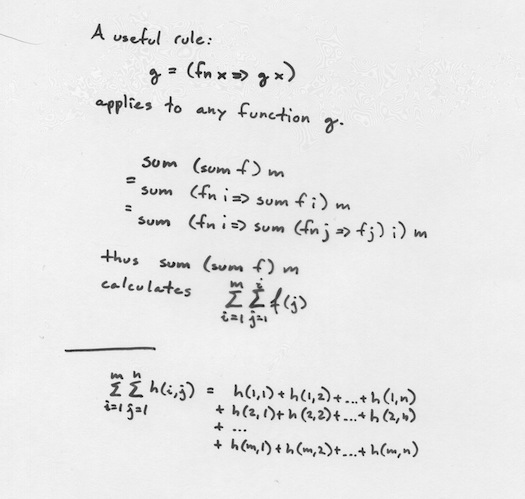 A useful rule:
g = (fn x => g x)
applies to any function g.
sum (sum f) m
=
sum (fn i => sum f i) m
=
sum (fn i => sum (fn j => f j) i) m
thus sum (sum f) m
calculates \sum_{i=1}^{m} \sum_{j=1}^{i} f(j)
\sum_{i=1}^{m} \sum_{j=1}^{n} h(i,j) = h(1,1)+h(1,2)+...+h(1,n)
+ h(2,1)+h(2,2)+...+h(2,n)
+ ...
+ h(m,1)+h(m,2)+...+h(m,n)